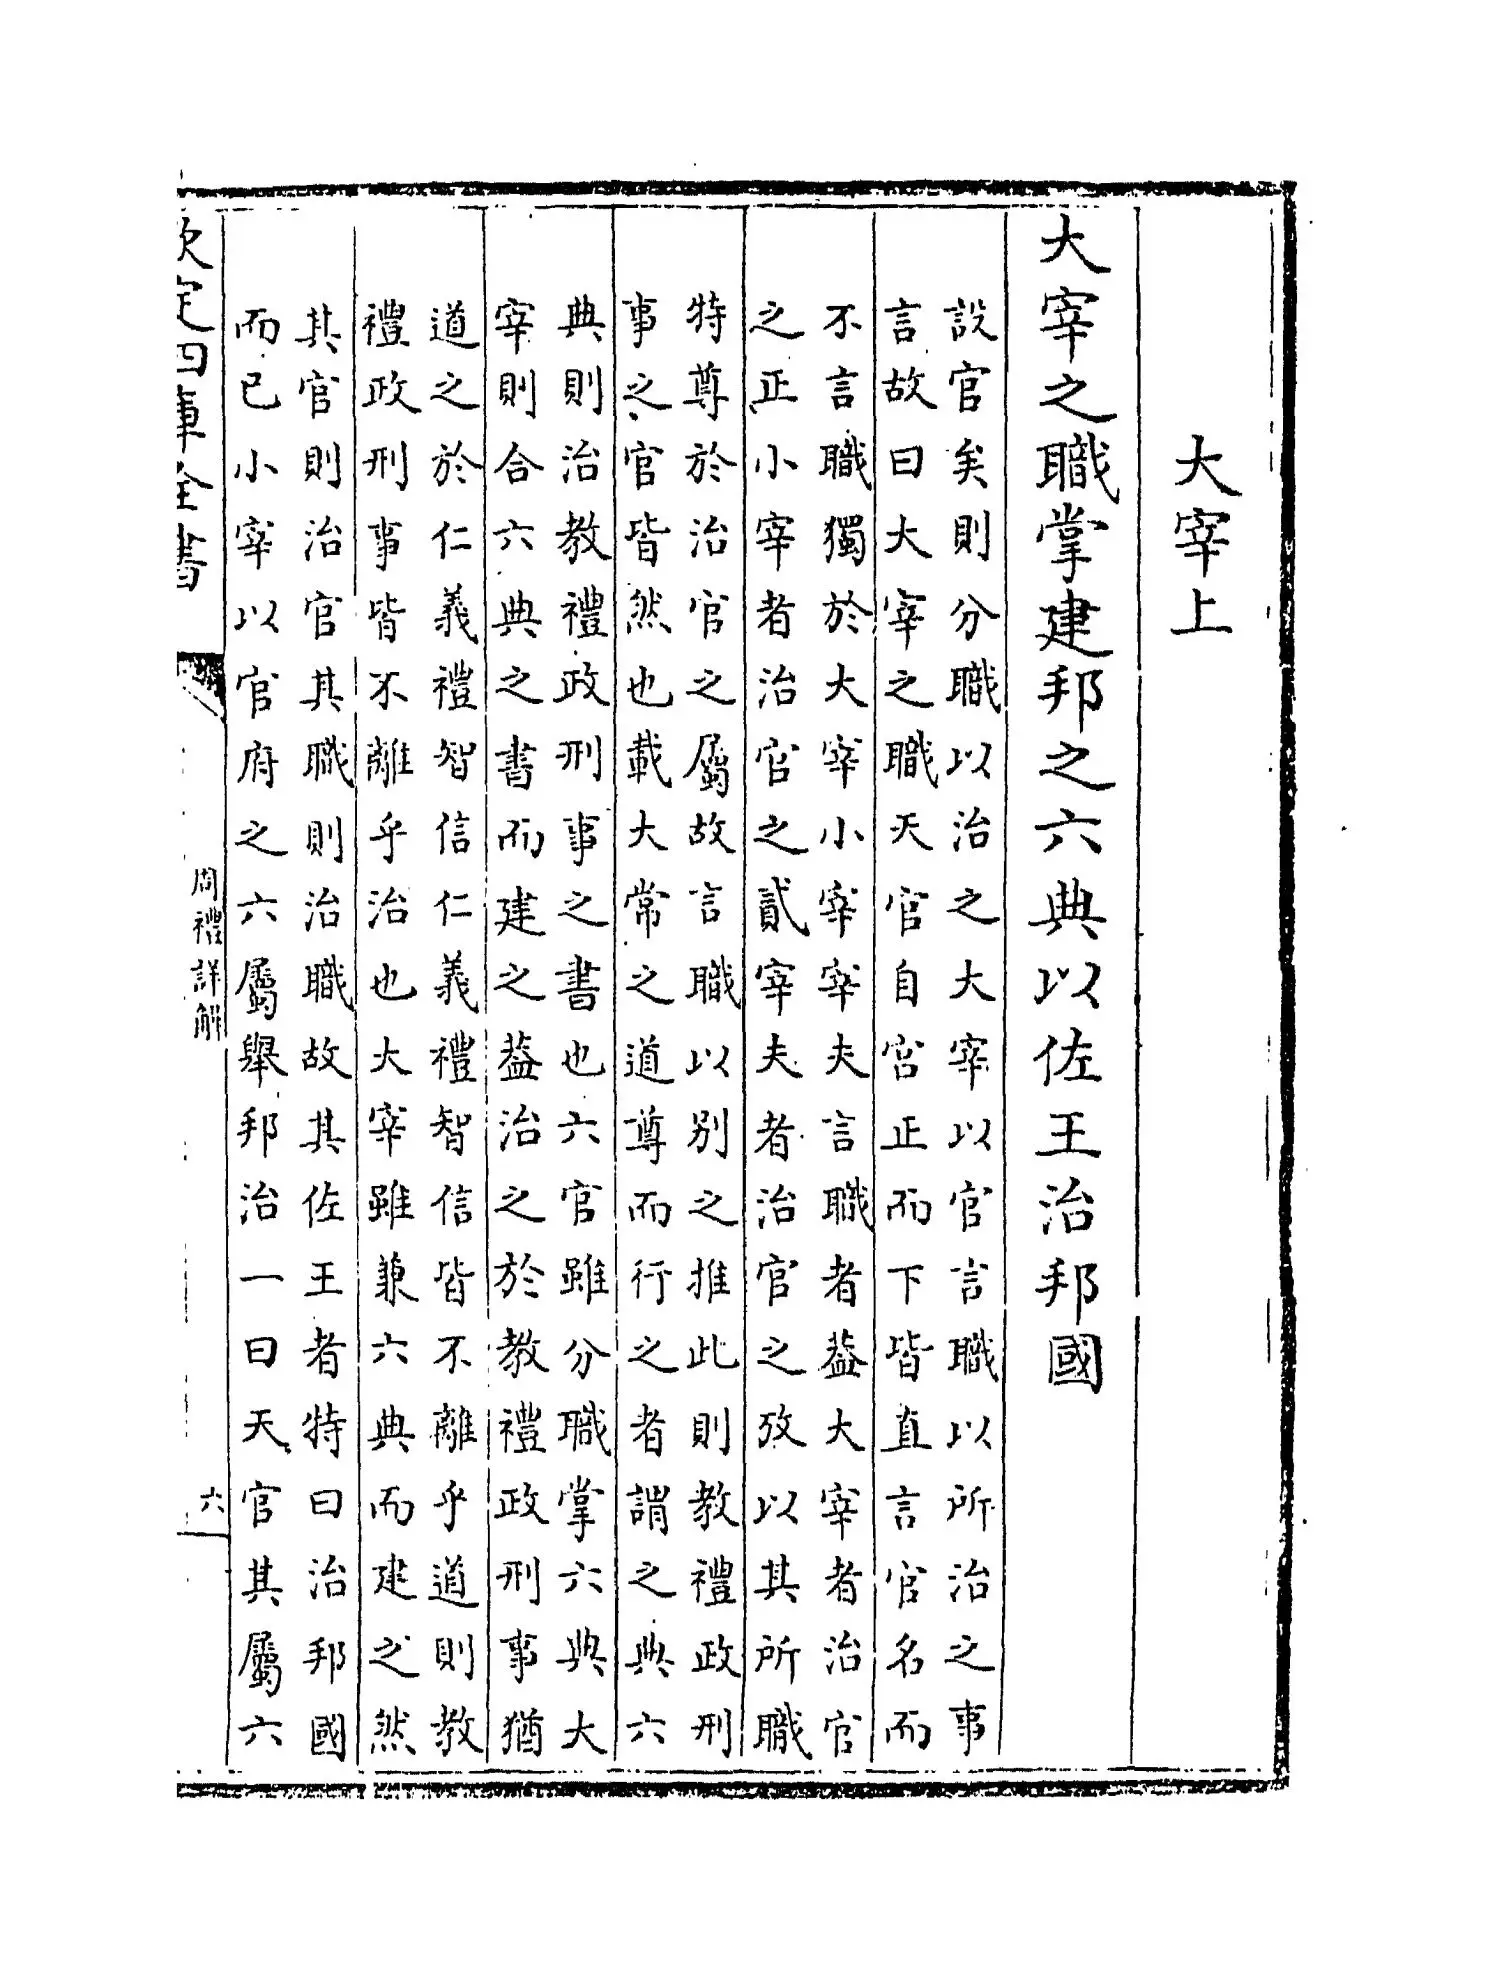 大宰上
大宰之職掌建邦之六典以佐王治邦國
設官矣則分職以治之大宰以官言職以所治之事
言故曰大宰之職天官自宫正而下皆直言官名而
不言職獨於大宰小宰宰夫言職者葢大宰者治官
之正小宰者治官之貳宰夫者治官之攷以其所職
特尊於治官之屬故言職以别之推此則教禮政刑
事之官皆然也載大常之道尊而行之者謂之典六
典則治教禮政刑事之書也六官雖分職掌六典大
宰則合六典之書而建之葢治之於教禮政刑事猶
道之於仁義禮智信仁義禮智信皆不離乎道則教
禮政刑事皆不離乎治也大宰雖兼六典而建之然
其官則治官其職則治職故其佐王者特曰治邦國
而已小宰以官府之六屬舉邦治一曰天官其屬六
欽定四庫全書
周禮詳解
六